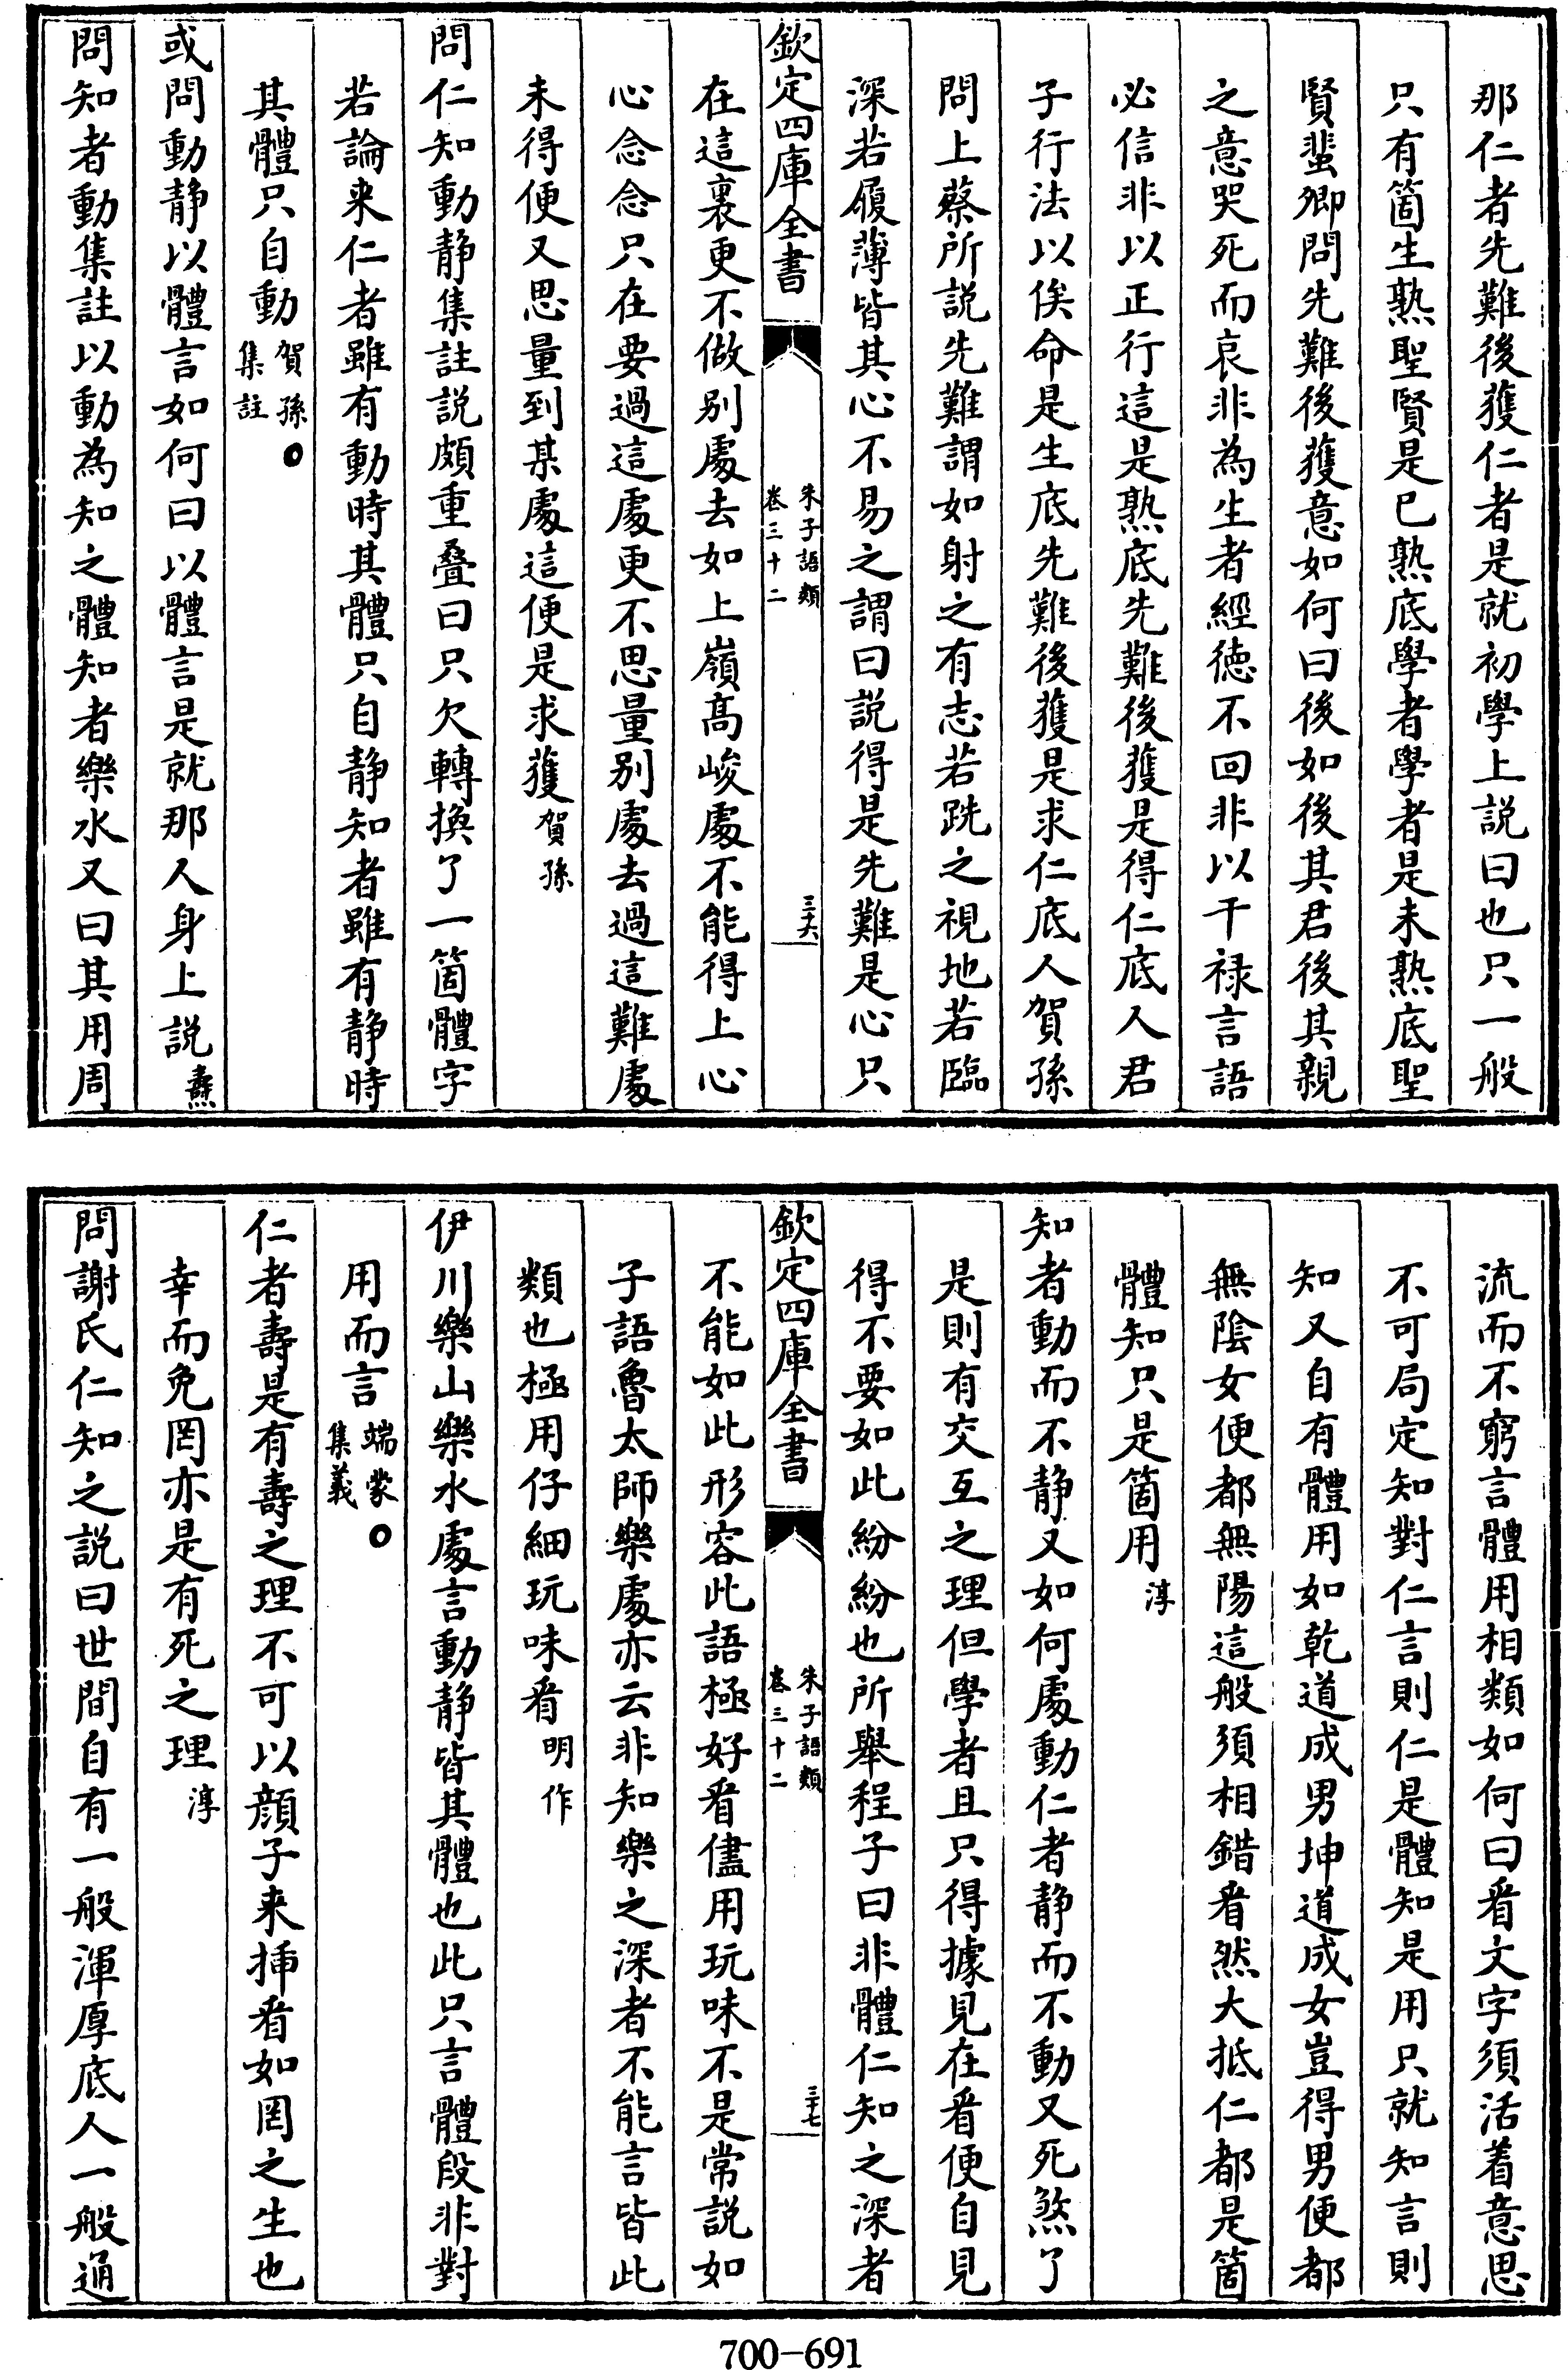 那仁者先難後獲仁者是就初學上説曰也只一般
只有箇生熟聖賢是已熟底學者學者是未熟底聖
賢蜚卿問先難後獲意如何曰後如後其君後其親
之意哭死而哀非為生者經徳不回非以干禄言語
必信非以正行這是熟底先難後獲是得仁底人君
子行法以俟命是生底先難後獲是求仁底人賀孫
問上蔡所説先難謂如射之有志若跣之視地若臨
深若履薄皆其心不易之謂曰説得是先難是心只
欽定四庫全書
朱子語類
卷三十二
三六
在這裏更不做别處去如上嶺髙峻處不能得上心
心念念只在要過這處更不思量别處去過這難處
未得便又思量到某處這便是求獲賀孫
問仁知動静集註説頗重叠曰只欠轉換了一箇體字
若論来仁者雖有動時其體只自静知者雖有静時
其體只自動賀孫○集註
或問動静以體言如何曰以體言是就那人身上説燾
問知者動集註以動為知之體知者樂水又曰其用周
流而不窮言體用相類如何曰看文字須活着意思
不可局定知對仁言則仁是體知是用只就知言則
知又自有體用如乾道成男坤道成女豈得男便都
無隂女便都無陽這般須相錯看然大抵仁都是箇
體知只是箇用淳
知者動而不静又如何處動仁者静而不動又死煞了
是則有交互之理但學者且只得據見在看便自見
得不要如此紛紛也所舉程子曰非體仁知之深者
欽定四庫全書
朱子語類
卷三十二
三七
不能如此形容此語極好看儘用玩味不是常説如
子語魯太師樂處亦云非知樂之深者不能言皆此
類也極用仔細玩味看明作
伊川樂山樂水處言動静皆其體也此只言體段非對
用而言端蒙○集義
仁者壽是有壽之理不可以顔子来揷看如罔之生也
幸而免罔亦是有死之理淳
問謝氏仁知之説曰世間自有一般渾厚底人一般通
700-691